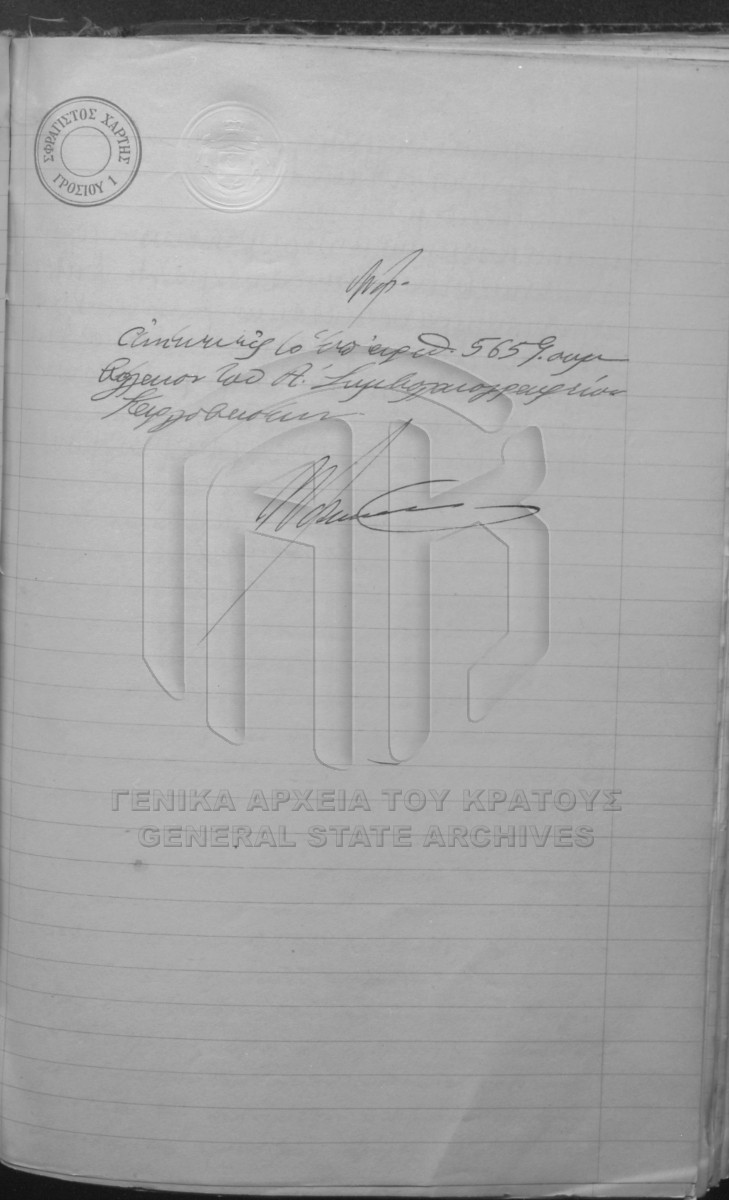 ΣΦΡΑΓΙΣΤΟΣ ΧΑΡΤΗΣ
ΓΡΟΣΙΟΥ 1
το ὑπ' ἀριθ. 5659. συμ
βόλαιον τοῦ Α΄. Συμβολαιογραφείου
Καρλοβασίων
ΓΕΝΙΚΑ ΑΡΧΕΙΑ ΤΟΥ ΚΡΑΤΟΥΣ
GENERAL STATE ARCHIVES